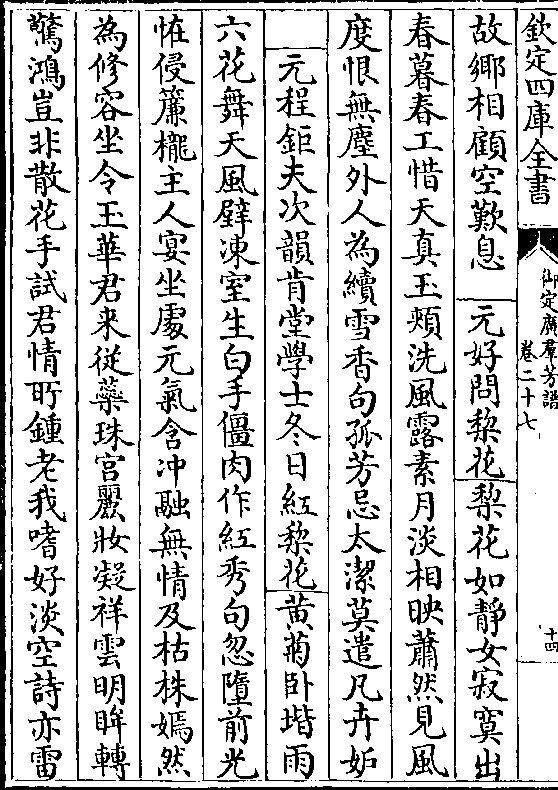 欽定四庫全書
御定廣羣芳譜
卷二十七
十四
故鄉相顧空歎息　元好問棃花棃花如靜女寂寞出
春暮春工惜天真玉頰洗風露素月淡相映蕭然見風
度恨無塵外人為續雪香句孤芳忌太潔莫遣凡卉妒
元程鉅夫次韻肯堂學士冬日紅棃花黄菊卧堦雨
六花舞天風壁凍室生白手僵肉作紅秀句忽墮前光
怪侵簾櫳主人宴坐處元氣含冲融無情及枯株嫣然
為修容坐令玉華君来從蘂珠宫麗妝凝祥雲明眸轉
驚鴻豈非散花手試君情所鍾老我嗜好淡空詩亦雷